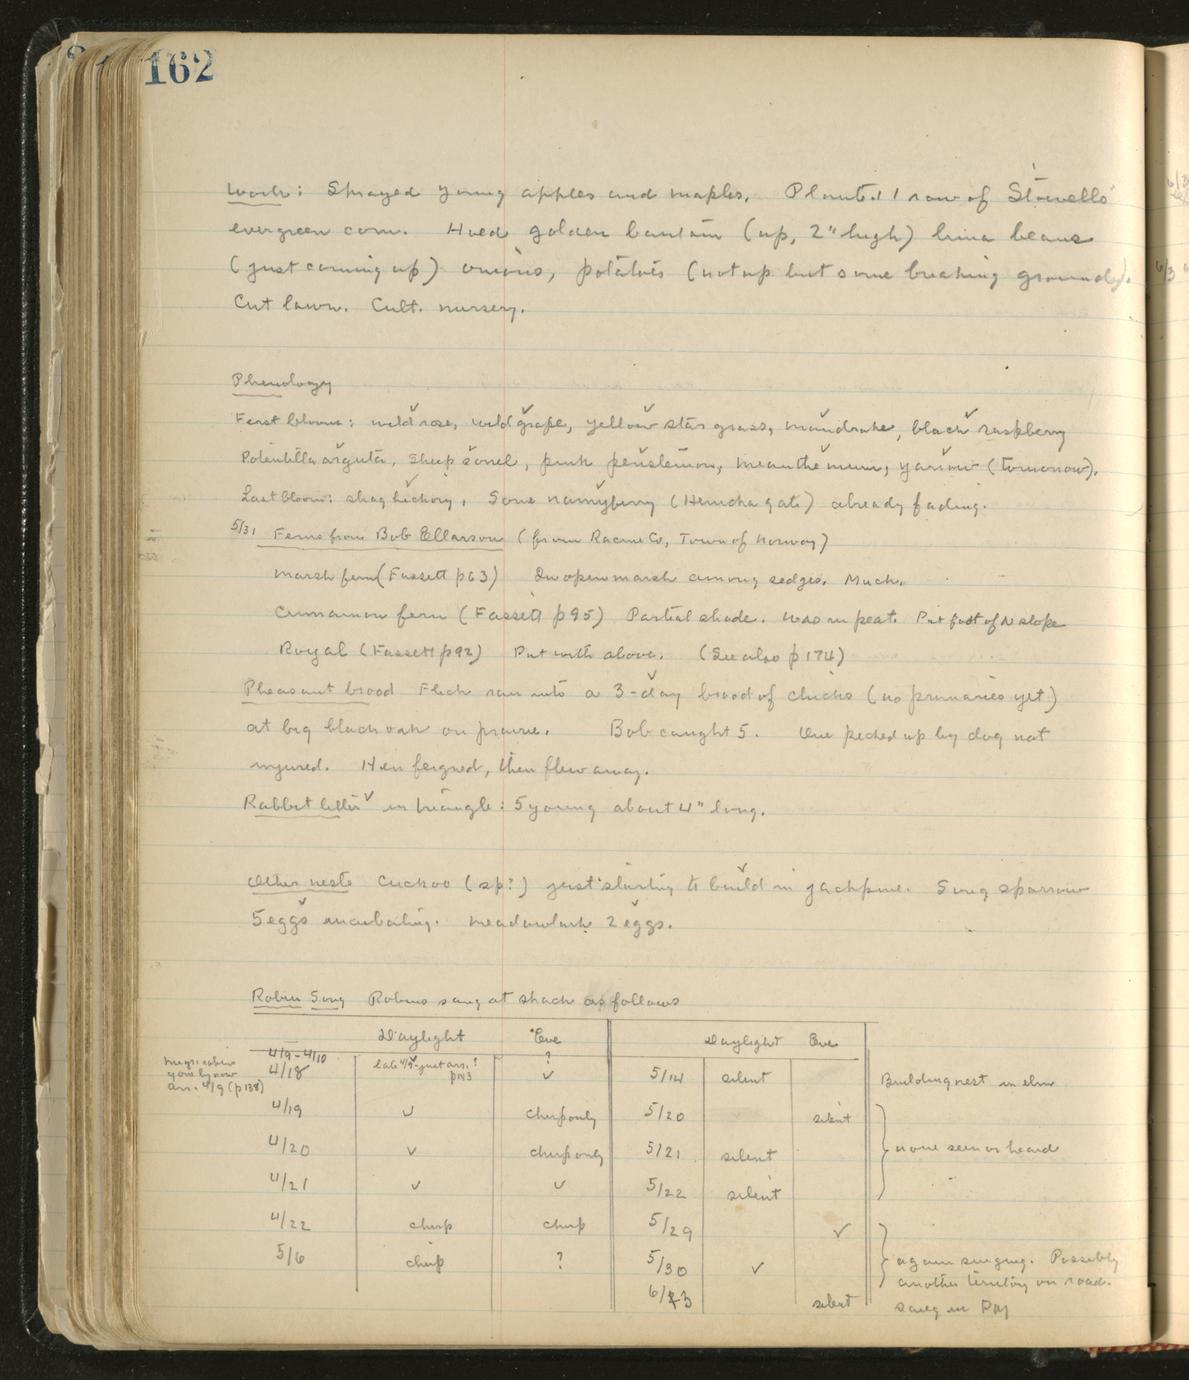 162
Work: Sprayed young apples and maples. Planted 1 row of Stowells'
evergreen corn. Hoed golden bantam (up, 2" high) lima beans
(just coming up) onions, potatoes (not up but some breaking ground).
Cut lawn. Cult. nursery.
Phenology
First blooms: wild rose, wild grape, yellow star grass, mandrake, black raspberry
Potentilla arguta, sheep sorrel, pink penstemon, meianthemum, yarrow (tomorrow).
Last bloom: shag hickory. Some nannyberry (Hemcha gate) already fading.
5/31 Ferns from Bob Ellarson (from Racine Co, Town of Norway)
Marsh fern (Fassett p63) In open marsh among sedges. Much.
Cinnamon fern (Fassett p95) Partial shade. Was in peat. Put foot of N slope
Royal (Fassett p92) Put with above. (See also p174)
Pheasant brood Flick ran into a 3-day brood of chicks (no primaries yet)
at big black oak on prairie. Bob caught 5. One picked up by dog not
injured. Hen feigned, then flew away.
Rabbit litter in triangle: 5 young about 4" long.
Other nests Cuckoo (sp?) just starting to build in jackpine. Song sparrow
5 eggs incubating. Meadowlark 2 eggs.
Robin Song Robins sang at shack as follows
Daylight Eve Daylight Eve
4/9-4/10 late 4/9-just arr.? p143 ?
arr. 4/9 (p138)
4/18 ✓ 5/14 silent Building nest in elm
4/19 ✓ chirp only 5/20 silent
4/20 ✓ chirp only 5/21 silent none seen or heard
4/21 ✓ ✓ 5/22 silent
4/22 chirp chirp 5/29 ✓
5/6 chirp ? 5/30 ✓ again singing. Possibly
another territory on road.
6/3 silent sang in PM